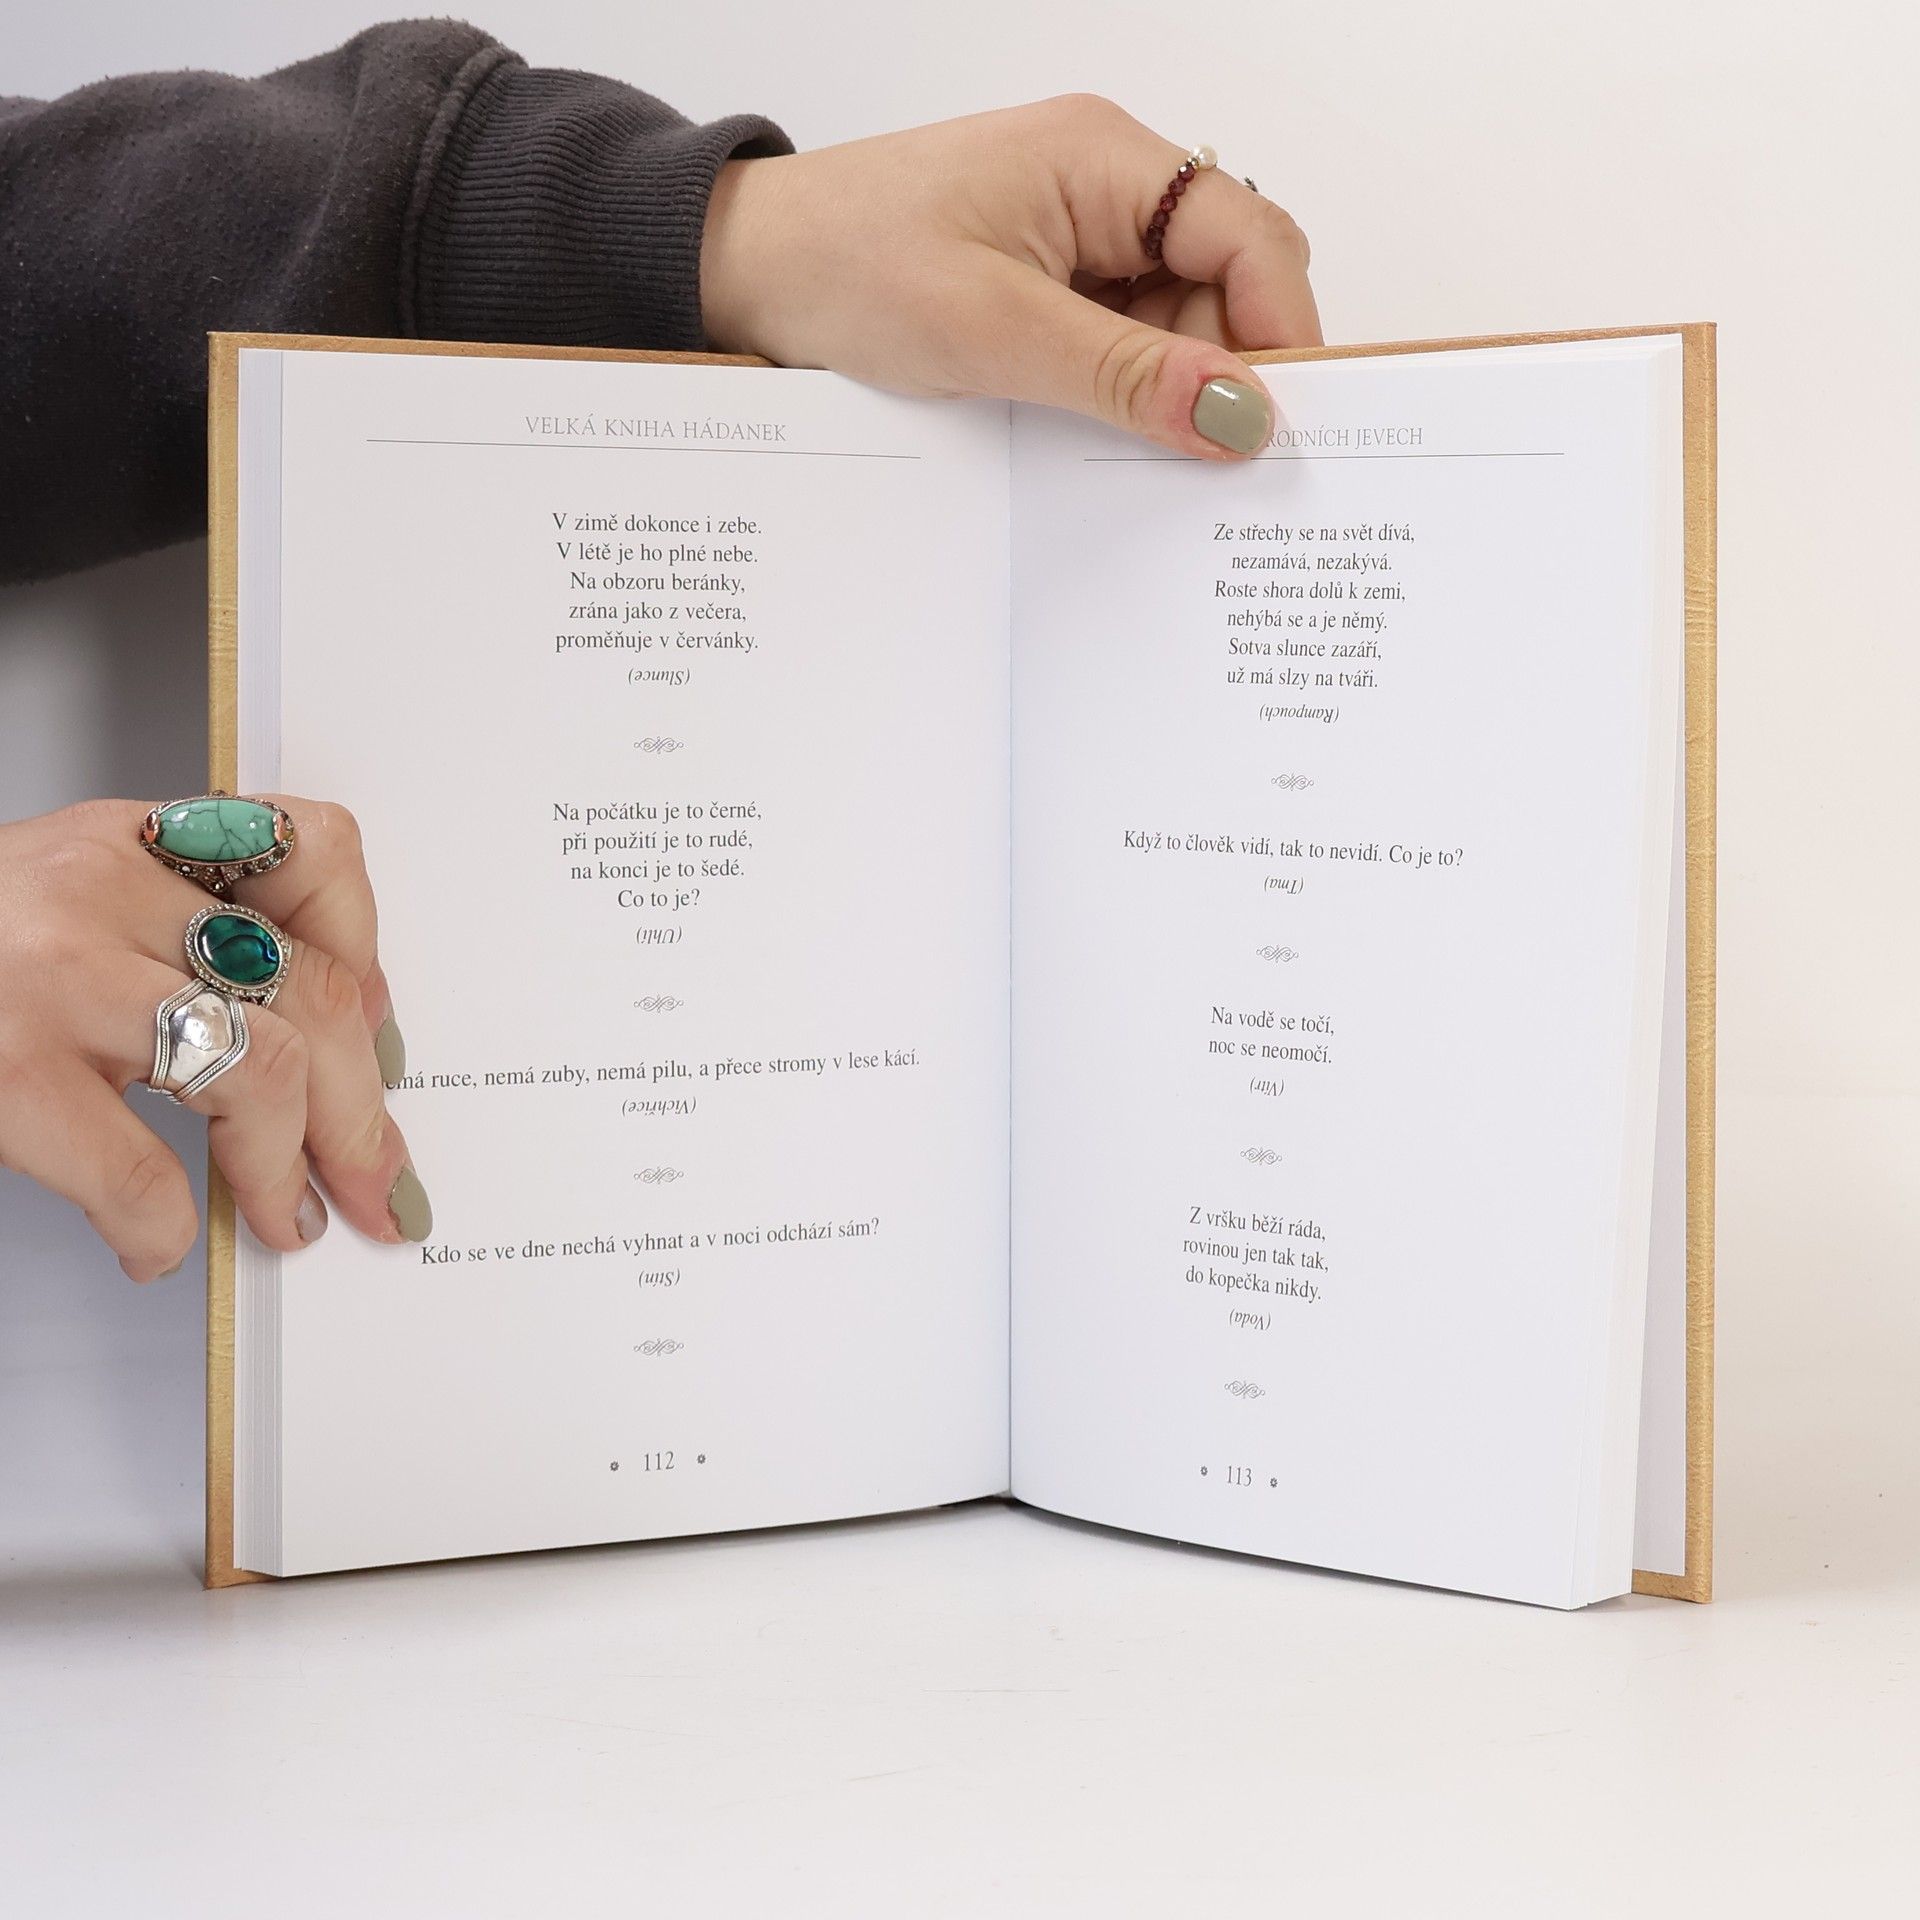 VELKÁ KNIHA HÁDANEK
V zimě dokonce i zebe.
V létě je ho plné nebe.
Na obzoru beránky,
zrána jako z večera,
proměňuje v červánky.
(Slunce)
Na počátku je to černé,
při použití je to rudé,
na konci je to šedé.
Co to je?
(Uhlí)
ruce, nemá zuby, nemá pilu, a přece stromy v lese kácí.
(Vichřice)
Kdo se ve dne nechá vyhnat a v noci odchází sám?
(Stín)
112
JEVECH
Ze střechy se na svět dívá,
nezamává, nezakývá.
Roste shora dolů k zemi,
nehýbá se a je němý.
Sotva slunce zazáří,
už má slzy na tváři.
(Rampouch)
Když to člověk vidí, tak to nevidí. Co je to?
(Tma)
Na vodě se točí,
noc se neomočí.
(Vítr)
Z vršku běží ráda,
rovinou jen tak tak,
do kopečka nikdy.
(Voda)
113